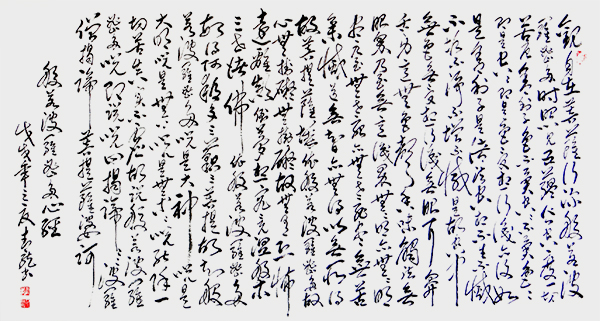 觀自在菩薩行深般若波
羅蜜多時照見五蘊皆空度一切
苦厄舍利子色不異空空不異色色
即是空空即是色受想行識亦復如
是舍利子是諸法空相不生不滅
不垢不淨不增不減是故空中
無色無受想行識無眼耳鼻
舌身意無色聲香味觸法無
眼界乃至無意識界無無明亦無無明
盡乃至無老死亦無老死盡無苦
集滅道無智亦無得以無所得
故菩提薩埵依般若波羅蜜多故
心無罣礙無罣礙故無有恐怖
遠離顛倒夢想究竟涅槃
三世諸佛依般若波羅蜜多
故得阿耨多羅三藐三菩提故知般
若波羅蜜多是大神咒是
大明咒是無上咒是無等等咒能除一
切苦真實不虛故說般若波羅
蜜多咒即說咒曰揭諦揭諦波羅
僧揭諦菩提薩婆訶
般若波羅蜜多心經
戊戌年